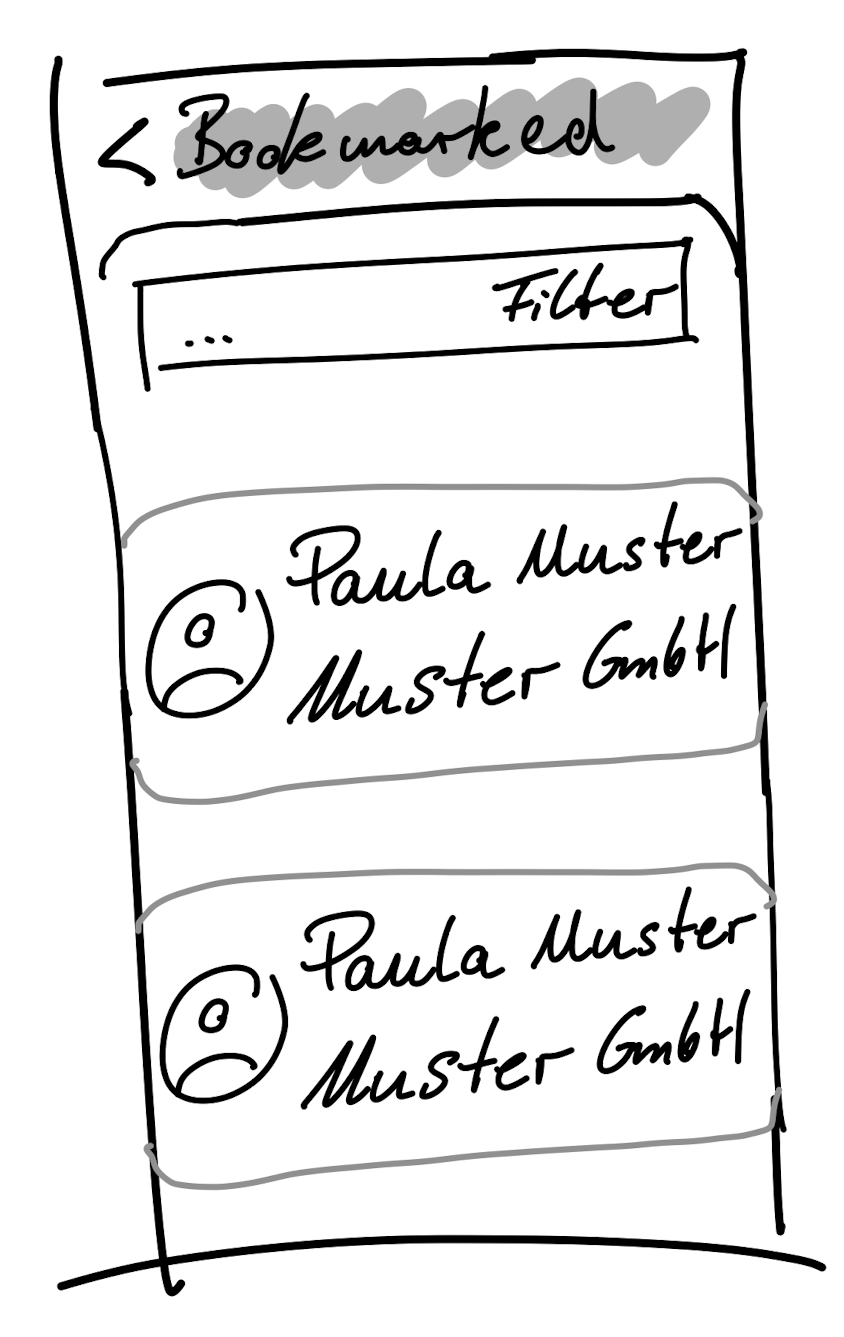 < Bookmarked
... Filter
Paula Muster
Muster GmbH
Paula Muster
Muster GmbH